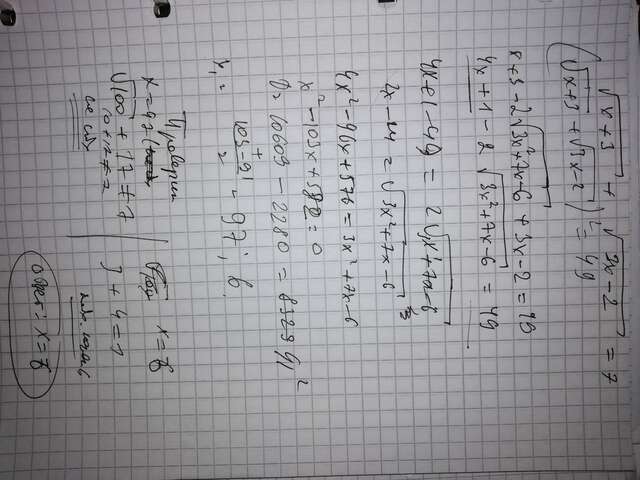 √x+3 + √3x-2 = 7
(√x+3 + √3x-2)² = 49
x+3-2√3x²+7x-6 + 3x-2 = 49
4x+1-2√3x²+7x-6 = 49
4x+1-49 = 2√3x²+7x-6
2x-24 = √3x²+7x-6
4x²-96x+576 = 3x²+7x-6
x²-103x+582=0
D=10609-2280=8329 91²
x₁ = 103±91/2 = 97; 6.
Проверим
x=97
√100 + 17≠7
10+17≠7
x=6
3+4=7
Ответ: x=6